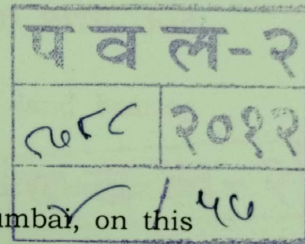 प व ल-२
२०१२
/ ५७
umbai, on this